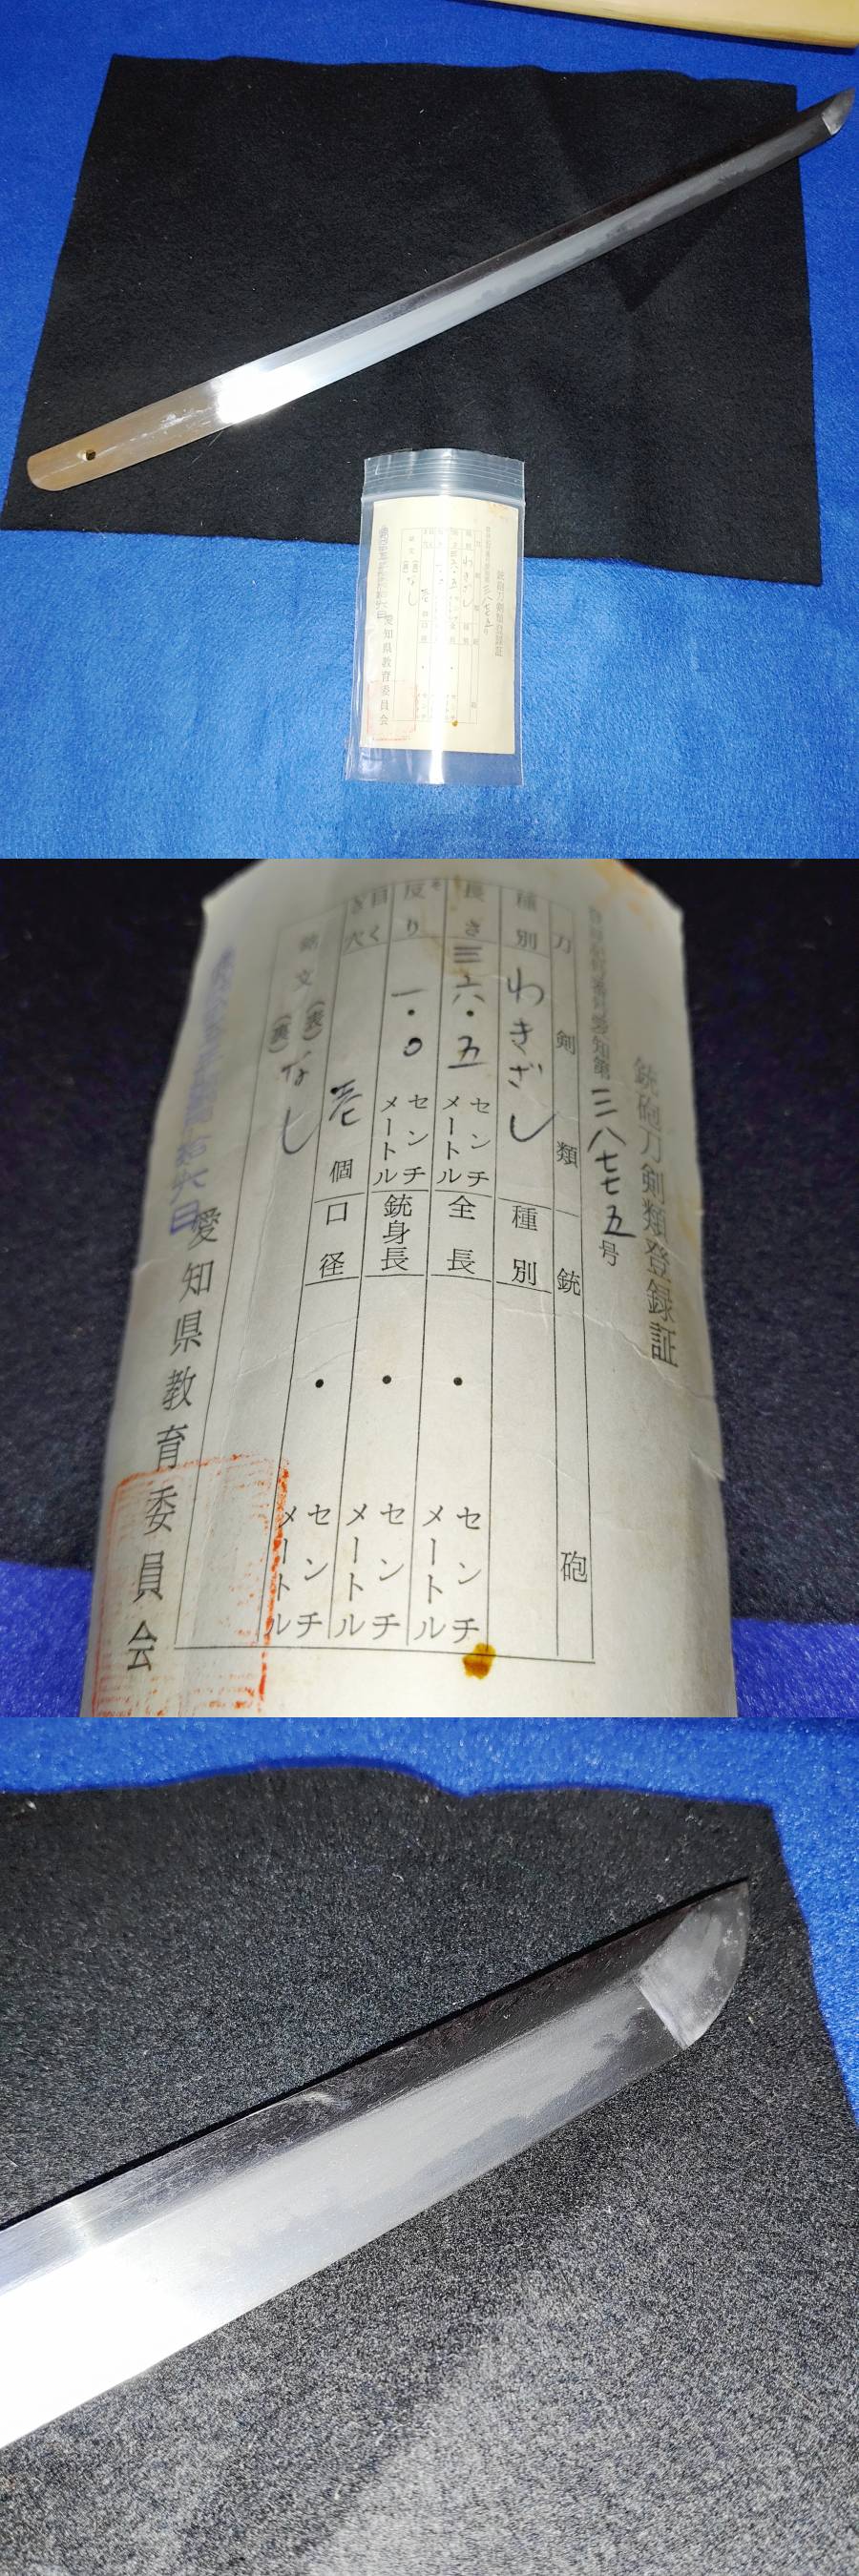 銃砲刀剣類登録証
愛知第三八七七五号
刀剣類
銃砲
種別 わきざし
種別
長さ 三六・五 センチメートル
全長 ・ センチメートル
そり 反り 一・0 センチメートル
銃身長 ・ センチメートル
目くぎ穴 壱個
口径 ・ センチメートル
銘文 (表) (裏) なし
拾六日
愛知県教育委員会